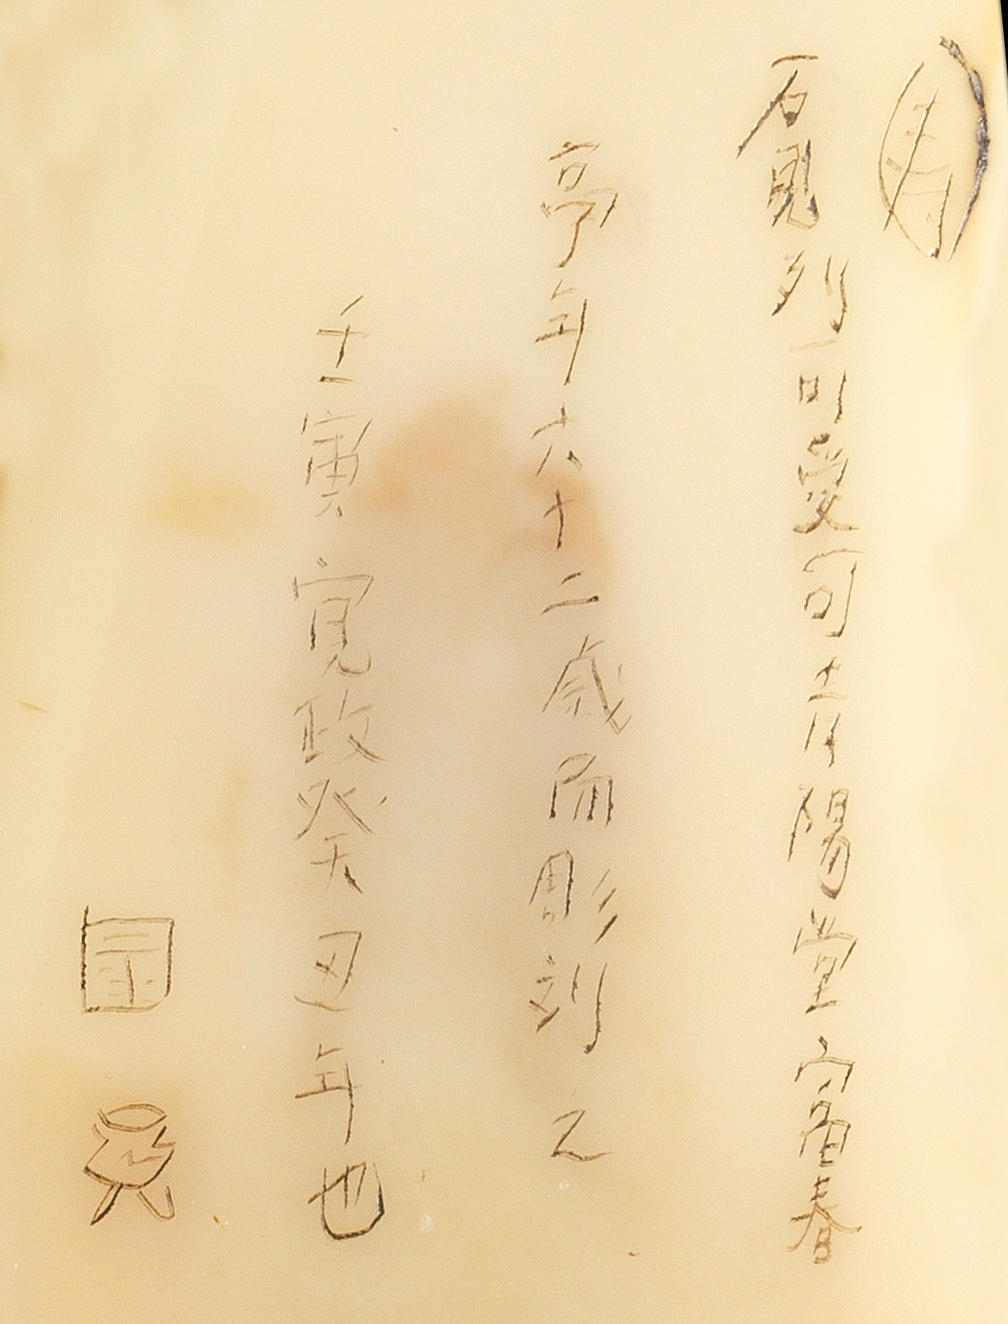 石見列可愛可青陽堂富春
享年六十二歳而彫刻之
壬寅寛政癸丑年也